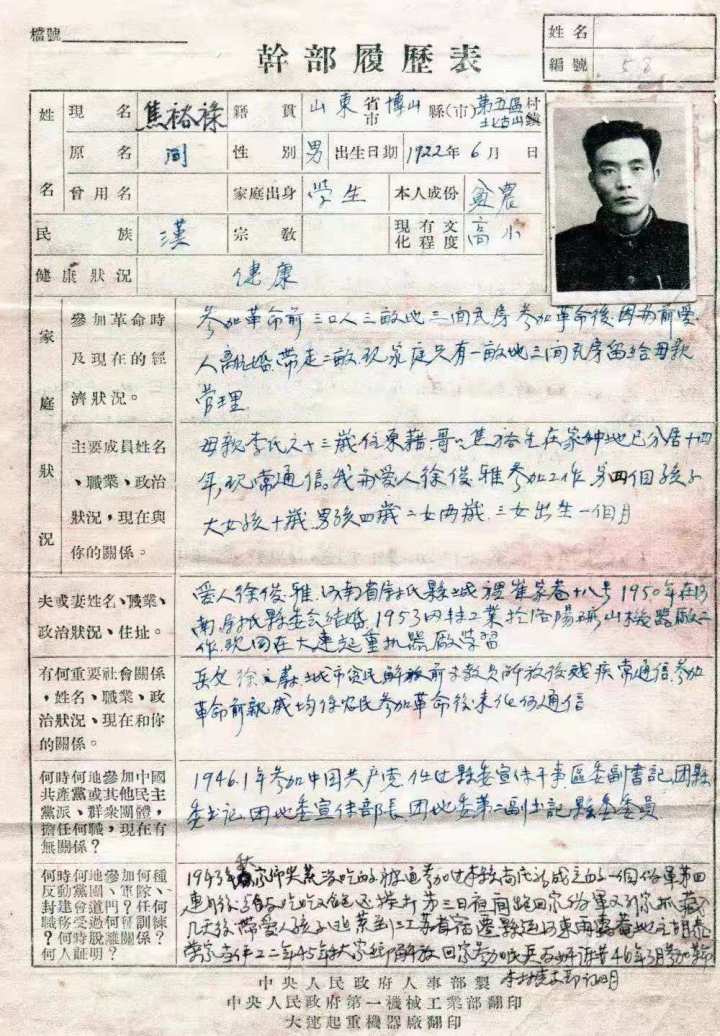 檔號
幹部履歷表
姓名
編號 58
姓名
現名 焦裕祿 籍貫 山東省市 博山縣(市) 第五區北古山村鎮
原名 同 性別 男 出生日期 1922年6月 日
曾用名 家庭出身 學生 本人成份 貧農
民族 漢 宗敎 現有文化程度 高小
健康狀況 健康
家庭狀況
參加革命時及現在的經濟狀況。
參加革命前三口人三畝地三間瓦房參加革命後因为前爱
人離婚帶走二畝现家庭只有一畝地三間瓦房留给母親
管理
主要成員姓名、職業、政治狀況,現在與你的關係。
母親李氏六十三歲住東藉.哥:焦裕生在家种地已分居十四
年,现常通信。我和爱人徐俊雅参加工作.另四個孩子
大女孩十歲.男孩四歲二女两歲.三女出生一個月
夫或妻姓名、職業、政治狀況、住址。
爱人徐俊雅.河南省尉氏縣城裡崔家巷十八号1950年在河
南尉氏縣委会结婚.1953内转工業於洛陽矿山机器廠工
作.现同在大連起重机器廠学習
有何重要社會關係,姓名、職業、政治狀況、現在和你的關係。
岳父 徐 城市贫民解放前 教員解放後残疾常通信.参加
革命前親戚均係农民参加革命後未任何通信
何時何地參加中國共產黨或其他民主黨派、羣衆團體,擔任何職,現在有無關係?
1946.1年参加中国共产党.任过縣委宣传干事.區委副書記.团縣
委书记.团地委宣传部長.团地委第二副书記.縣委委員
何時何地參加何種反動黨團、軍隊、封建會道門?任何職務受過何種訓練?何時脫離關係?何人証明?
1943年秋家
第三日夜間跑回家
几天後.帶爱人孩子 到江苏省宿遷縣
二年45年 家鄉解放回家参加
中央人民政府人事部製
中央人民政府第一機械工業部翻印
大連起重機器廠翻印